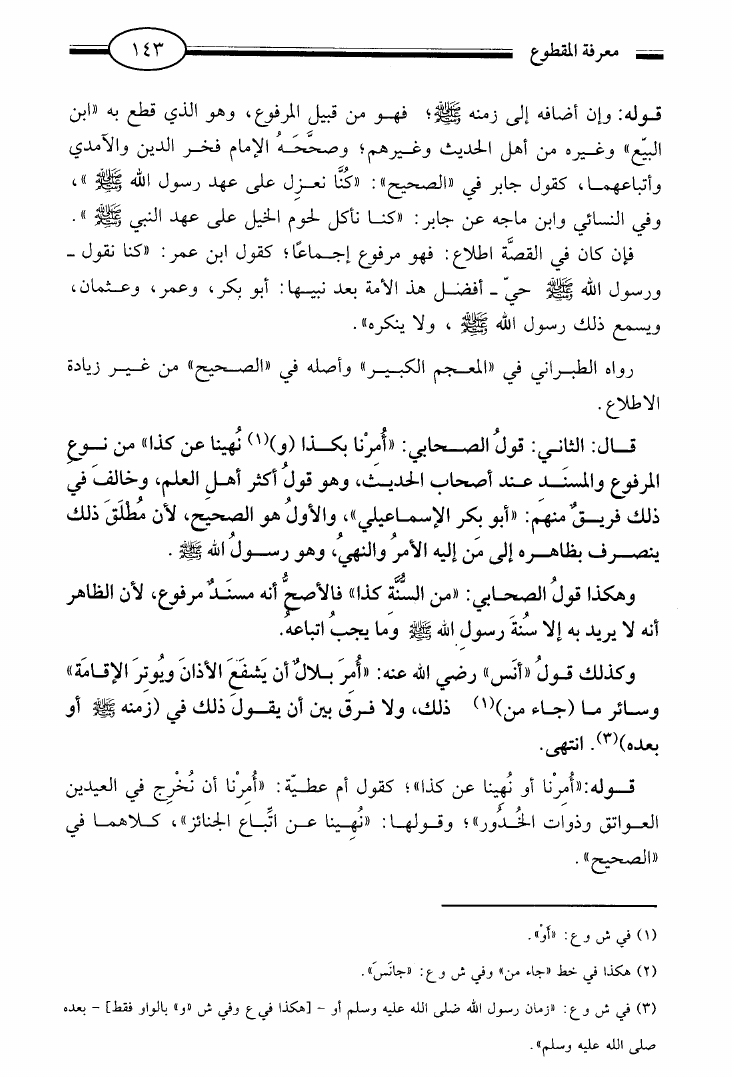 معرفة المقطوع ١٤٣
قوله: وإن أضافه إلى زمنه ﷺ؛ فهو من قبيل المرفوع، وهو الذي قطع به «ابن
البيّع» وغيره من أهل الحديث وغيرهم؛ وصحَّحَهُ الإمام فخر الدين والآمدي
وأتباعهما، كقول جابر في «الصحيح»: «كُنَّا نعزل على عهد رسول الله ﷺ»،
وفي النسائي وابن ماجه عن جابر: «كنا نأكل لحوم الخيل على عهد النبي ﷺ».
فإن كان في القصَّة اطلاع: فهو مرفوع إجماعًا؛ كقول ابن عمر: «كنا نقول ـ
ورسول الله ﷺ حيّ ـ أفضل هذ الأمة بعد نبيها: أبو بكر، وعمر، وعثمان،
ويسمع ذلك رسول الله ﷺ، ولا ينكره».
رواه الطبراني في «المعجم الكبير» وأصله في «الصحيح» من غير زيادة
الاطلاع.
قال: الثاني: قولُ الصحابي: «أُمرْنا بكذا (و)(١) نُهينا عن كذا» من نوع
المرفوع والمسنَد عند أصحاب الحديث، وهو قولُ أكثر أهل العلم، وخالفَ في
ذلك فريقٌ منهم: «أبو بكر الإسماعيلي»، والأولُ هو الصحيح، لأن مُطْلَقَ ذلك
ينصرف بظاهره إلى مَن إليه الأمرُ والنهيُ، وهو رسولُ الله ﷺ.
وهكذا قولُ الصحابي: «من السُّنَّة كذا» فالأصحُّ أنه مسنَدٌ مرفوع، لأن الظاهر
أنه لا يريد به إلا سُنةَ رسول الله ﷺ وما يجبُ اتباعهُ.
وكذلك قولُ «أنَس» رضي الله عنه: «أُمرَ بلالٌ أن يَشفَعَ الأذانَ ويُوتِرَ الإقامَة»
وسائر ما (جاء من)(١) ذلك، ولا فرقَ بين أن يقولَ ذلك في (زمنه ﷺ أو
بعده)(٣). انتهى.
قوله:«أُمِرْنا أو نُهينا عن كذا»؛ كقول أم عطيّة: «أُمِرْنا أن نُخْرِج في العيدين
العواتق وذوات الخُدُور»؛ وقولها: «نُهِينا عن اتِّباع الجنائز»، كلاهما في
«الصحيح».
(١) في ش و ع: «أوْ».
(٢) هكذا في خط «جاء من» وفي ش و ع: «جانَسَ».
(٣) في ش و ع: «زمان رسول الله صلى الله عليه وسلم أو - [هكذا في ع وفي ش «و» بالواو فقط] - بعده
صلى الله عليه وسلم».